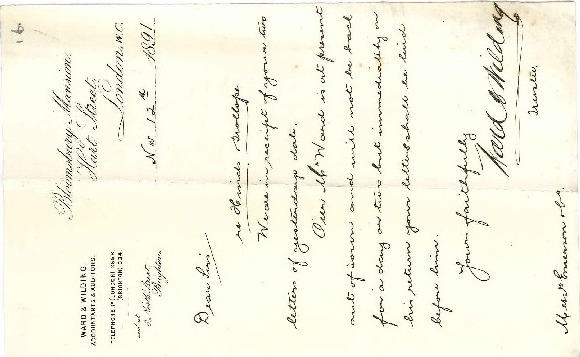 16
WARD & WILDING.
ACCOUNTANTS & AUDITORS.
TELEPHONE Nº LONDON
BRIGHTON, 234.
and at
North Street
Brighton
Bloomsbury Mansion,
Hart Street,
London, W.C.
Nov 12th 1891
Dear Sirs
re Hinds
We are in receipt of yours two
letters of yesterdays date.
Our Mr Ward is at present
out of town and will not be back
for a day or two but immediately on
his return your letters shall be laid
before him.
Yours faithfully
Ward & Wilding
Messrs Emerson